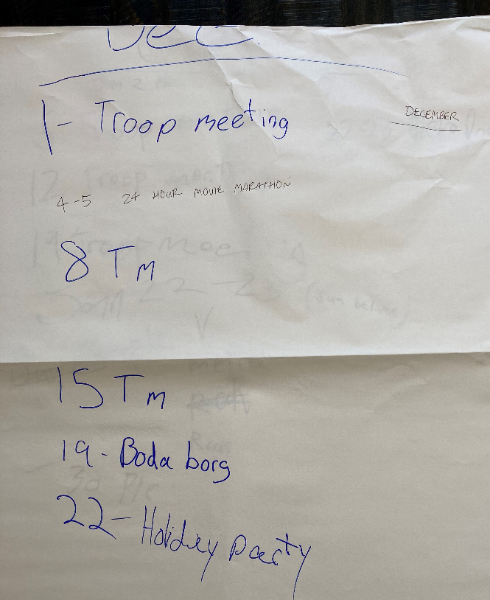 Dec
1- Troop meeting
DECEMBER
4-5 24 HOUR MOVIE MARATHON
8 Tm
15 Tm
19- Boda borg
22- Holiday party